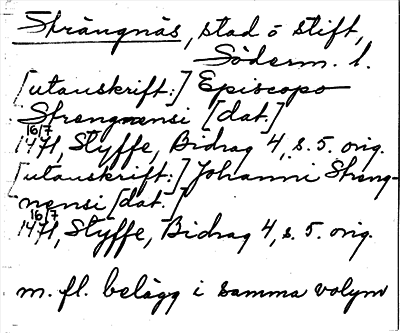 Strängnäs, stad o stift,
Söderm. l.
[utanskrift:] Episcopo
Strengnensi [dat.]
16/7
1471, Styffe, Bidrag 4, s. 5. orig.
[utanskrift:] Johanni Streng-
nensi [dat.]
16/7
1471, Styffe, Bidrag 4, s. 5. orig.
m. fl. belägg i samma volym